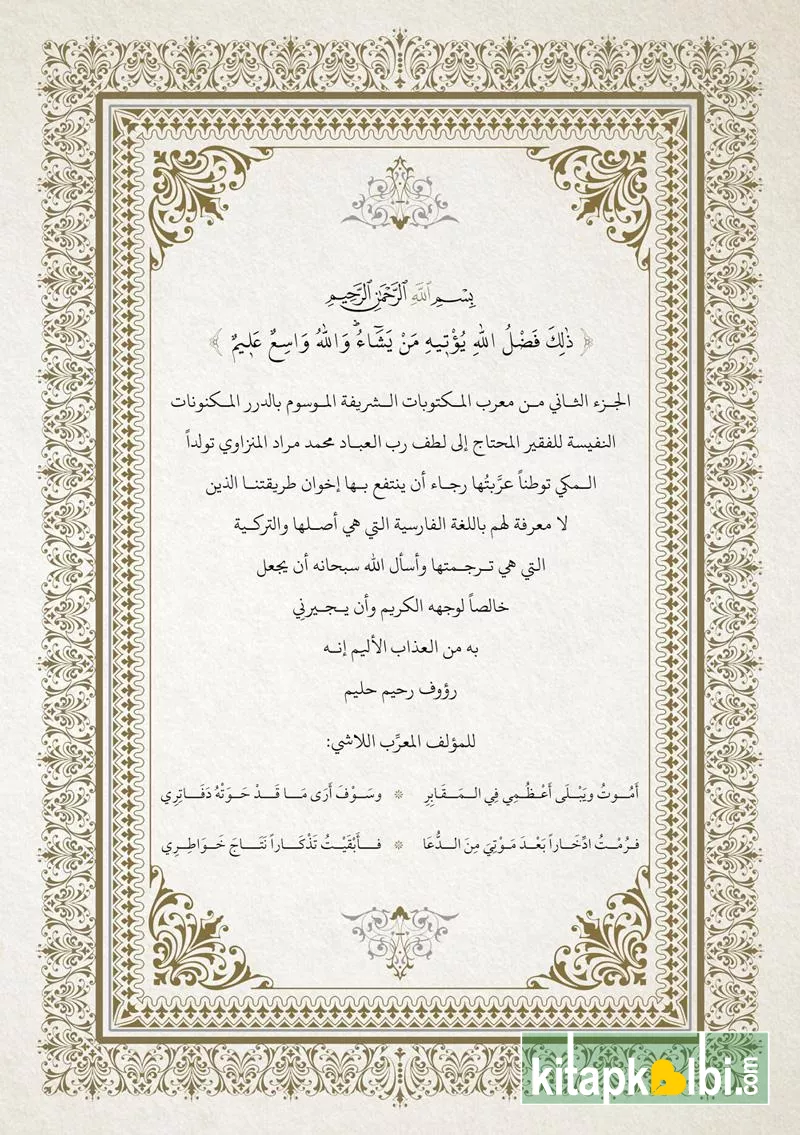 بِسْمِ اللَّهِ الرَّحْمَٰنِ الرَّحِيمِ
﴿ ذٰلِكَ فَضْلُ اللهِ يُؤْتِيهِ مَنْ يَشَٓاءُ وَاللهُ وَاسِعٌ عَلِيمٌ ﴾
الجزء الثاني من معرب المكتوبات الشريفة الموسوم بالدرر المكنونات
النفيسة للفقير المحتاج إلى لطف رب العباد محمد مراد المنزاوي تولداً
المكي توطناً عرَّبتُها رجاء أن ينتفع بها إخوان طريقتنا الذين
لا معرفة لهم باللغة الفارسية التي هي أصلها والتركية
التي هي ترجمتها وأسأل الله سبحانه أن يجعل
خالصاً لوجهه الكريم وأن يجيرنِي
به من العذاب الأليم إنه
رؤوف رحيم حليم
للمؤلف المعرَّب اللاشي:
أَمُوتُ ويَبْلَى أَعْظُمِي فِي المَقَابِرِ ۞ وسَوْفَ أَرَى مَا قَدْ حَوَتْهُ دَفَاتِرِي
فرُمْتُ ادِّخَاراً بَعْدَ مَوْتِيَ مِنَ الدُّعَا ۞ فأَبْقَيْتُ تَذْكَاراً نَتَاجَ خَوَاطِرِي
kitapkalbi.com